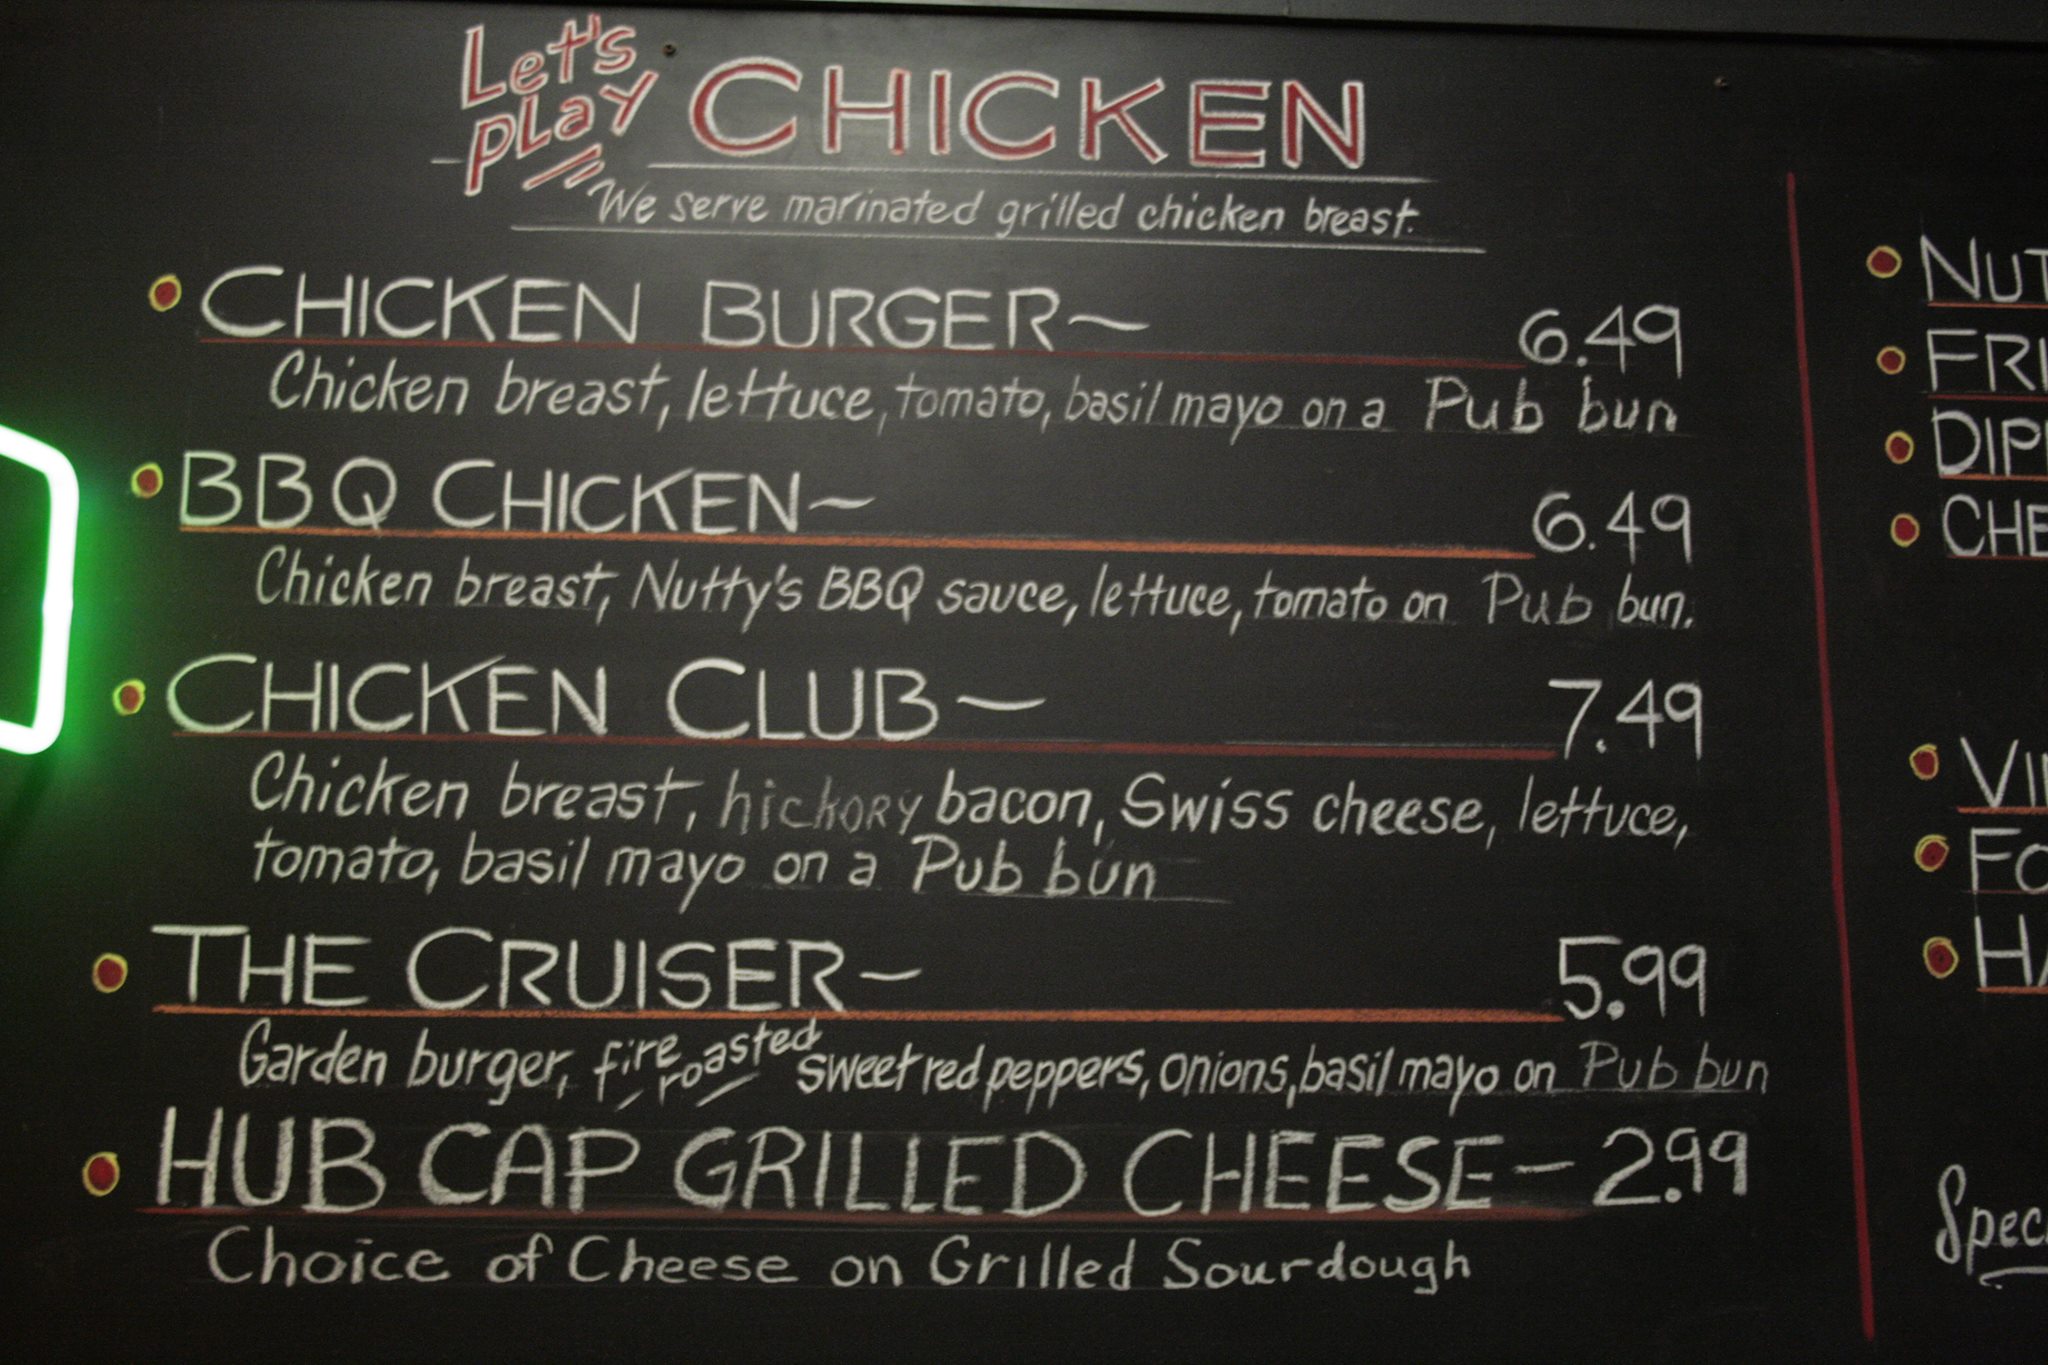 Let's
play CHICKEN
We serve marinated grilled chicken breast.
CHICKEN BURGER~ 6.49
Chicken breast, lettuce, tomato, basil mayo on a Pub bun
BBQ CHICKEN~ 6.49
Chicken breast, Nutty's BBQ sauce, lettuce, tomato on Pub bun.
CHICKEN CLUB~ 7.49
Chicken breast, hickory bacon, Swiss cheese, lettuce,
tomato, basil mayo on a Pub bun
THE CRUISER~ 5.99
Garden burger, fire roasted sweet red peppers, onions, basil mayo on Pub bun
HUB CAP GRILLED CHEESE - 2.99
Choice of Cheese on Grilled Sourdough